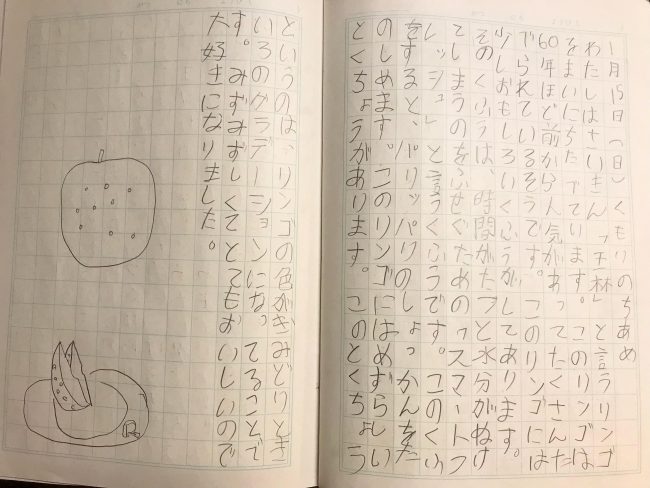 1月15日(日)くもりのちあめ
わたしはさいきん「王林」と言うリンゴ
をまいにちたべています。このリンゴは
60年ほど前から人気があっ
そうです。このリンゴには
少しおもしろいくふうがしてあります。
そのくふうは、時間がたつと水分がぬけ
てしまうのをふせぐための「スマートフ
レッシュ」と言うくふうです。このくふう
をすると、パリッパリのしょっかんをた
のしめます。このリンゴにはめずらしい
とくちょうがあります。このとくちょう
というのは、リンゴの色がきみどりとき
いろのグラデーションになってることで
す。みずみずしくてとてもおいしいので
大好きになりました。